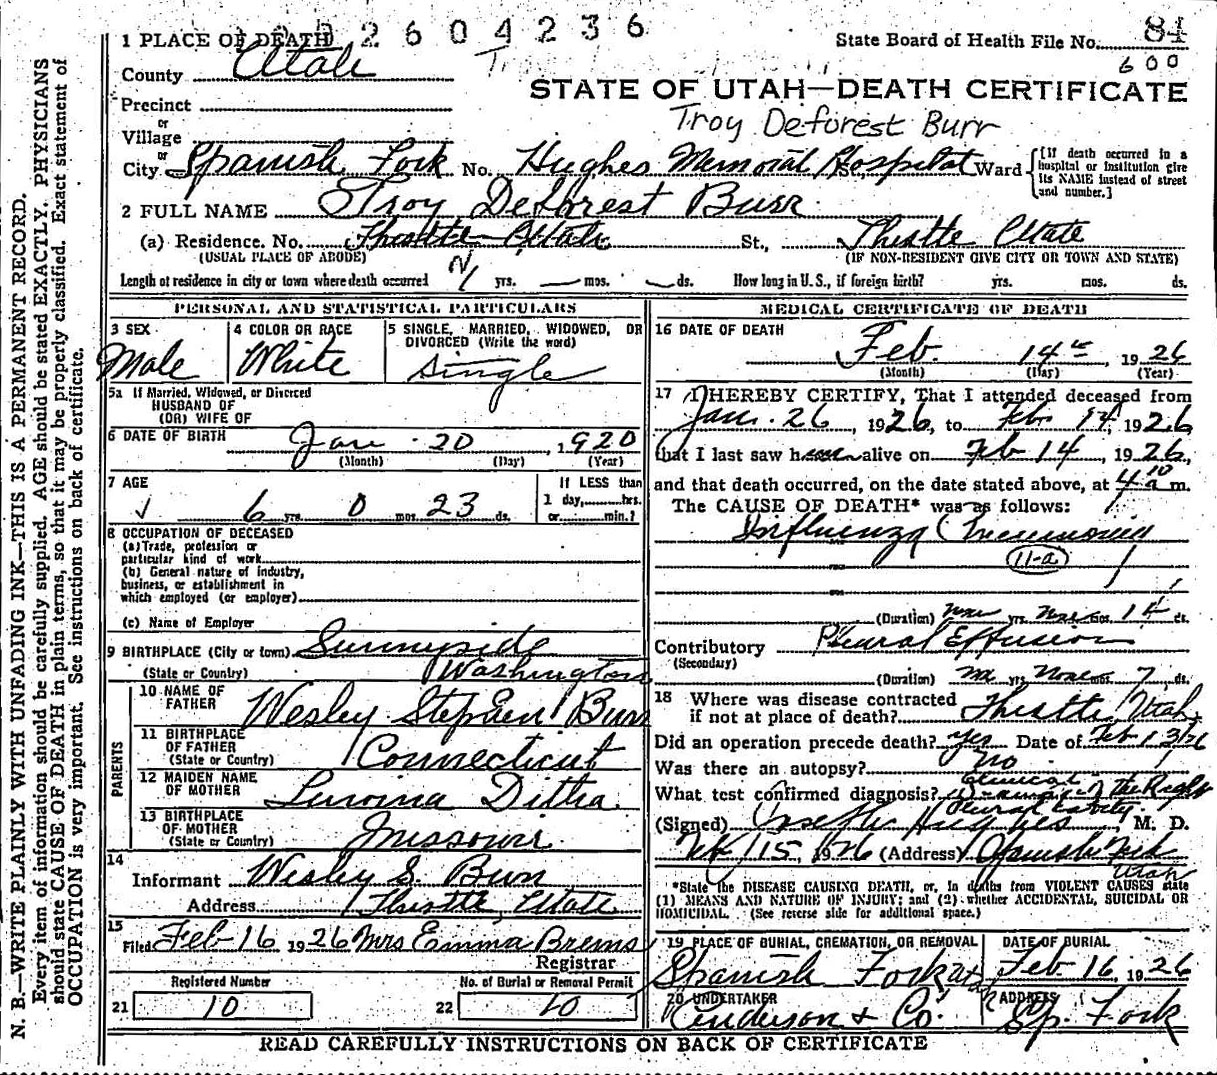 2604236
84
1 PLACE OF DEATH
State Board of Health File No.
600
County Utah
STATE OF UTAH—DEATH CERTIFICATE
Precinct
Troy Deforest Burr
or
Village
or
City Spanish Fork No. Hughes Memorial Hospital St., Ward
[If death occurred in a hospital or institution give its NAME instead of street and number.]
2 FULL NAME Troy DeForest Burr
(a) Residence. No. Thistle Utah St., Thistle Utah
(USUAL PLACE OF ABODE) (IF NON-RESIDENT GIVE CITY OR TOWN AND STATE)
Length of residence in city or town where death occurred yrs. mos. ds. How long in U. S., if of foreign birth? yrs. mos. ds.
PERSONAL AND STATISTICAL PARTICULARS
3 SEX
Male
4 COLOR OR RACE
White
5 SINGLE, MARRIED, WIDOWED, OR DIVORCED (Write the word)
Single
5a If Married, Widowed, or Divorced
HUSBAND OF
(OR) WIFE OF
6 DATE OF BIRTH Jan 20, 1920
(Month) (Day) (Year)
7 AGE
6 yrs. 0 mos. 23 ds.
If LESS than
1 day, hrs.
or min.?
8 OCCUPATION OF DECEASED
(a) Trade, profession or
particular kind of work
(b) General nature of industry,
business, or establishment in
which employed (or employer)
(c) Name of Employer
9 BIRTHPLACE (City or town) Sunnyside
(State or Country) Washington
PARENTS
10 NAME OF FATHER Wesley Stephen Burr
11 BIRTHPLACE OF FATHER (State or Country) Connecticut
12 MAIDEN NAME OF MOTHER
13 BIRTHPLACE OF MOTHER (State or Country) Missouri
14
Informant Wesley S. Burr
Address Thistle, Utah
15
Filed Feb 16 1926 Mrs Emma Brems
Registrar
Registered Number
21 10
No. of Burial or Removal Permit
22 10
MEDICAL CERTIFICATE OF DEATH
16 DATE OF DEATH
Feb. 14th, 1926
(Month) (Day) (Year)
17 I HEREBY CERTIFY, That I attended deceased from
Jan. 26, 1926, to Feb. 14, 1926
that I last saw him alive on Feb 14, 1926,
and that death occurred, on the date stated above, at 4 10 a m.
The CAUSE OF DEATH* was as follows:
Influenza Pneumonia
11-a
(Duration) yrs. mos. 14 ds.
Contributory Plural Effusion
(Secondary)
(Duration) yrs. None mos. 7 ds.
18 Where was disease contracted
if not at place of death? Thistle, Utah
Did an operation precede death? yes Date of Feb 13/26
Was there an autopsy? no
What test confirmed diagnosis? Clinical of the Right
Plural Cavity
(Signed) Joseph Hughes, M. D.
Feb 15, 1926 (Address) Spanish Fork
Utah
*State the DISEASE CAUSING DEATH, or, in deaths from VIOLENT CAUSES state
(1) MEANS AND NATURE OF INJURY; and (2) whether ACCIDENTAL, SUICIDAL OR
HOMICIDAL. (See reverse side for additional space.)
19 PLACE OF BURIAL, CREMATION, OR REMOVAL
Spanish Fork Utah
DATE OF BURIAL
Feb 16, 1926
20 UNDERTAKER
Anderson & Co.
ADDRESS
Sp. Fork
READ CAREFULLY INSTRUCTIONS ON BACK OF CERTIFICATE
N. B.—WRITE PLAINLY WITH UNFADING INK—THIS IS A PERMANENT RECORD.
Every item of information should be carefully supplied. AGE should be stated EXACTLY. PHYSICIANS
should state CAUSE OF DEATH in plain terms, so that it may be properly classified. Exact statement of
OCCUPATION is very important. See instructions on back of certificate.